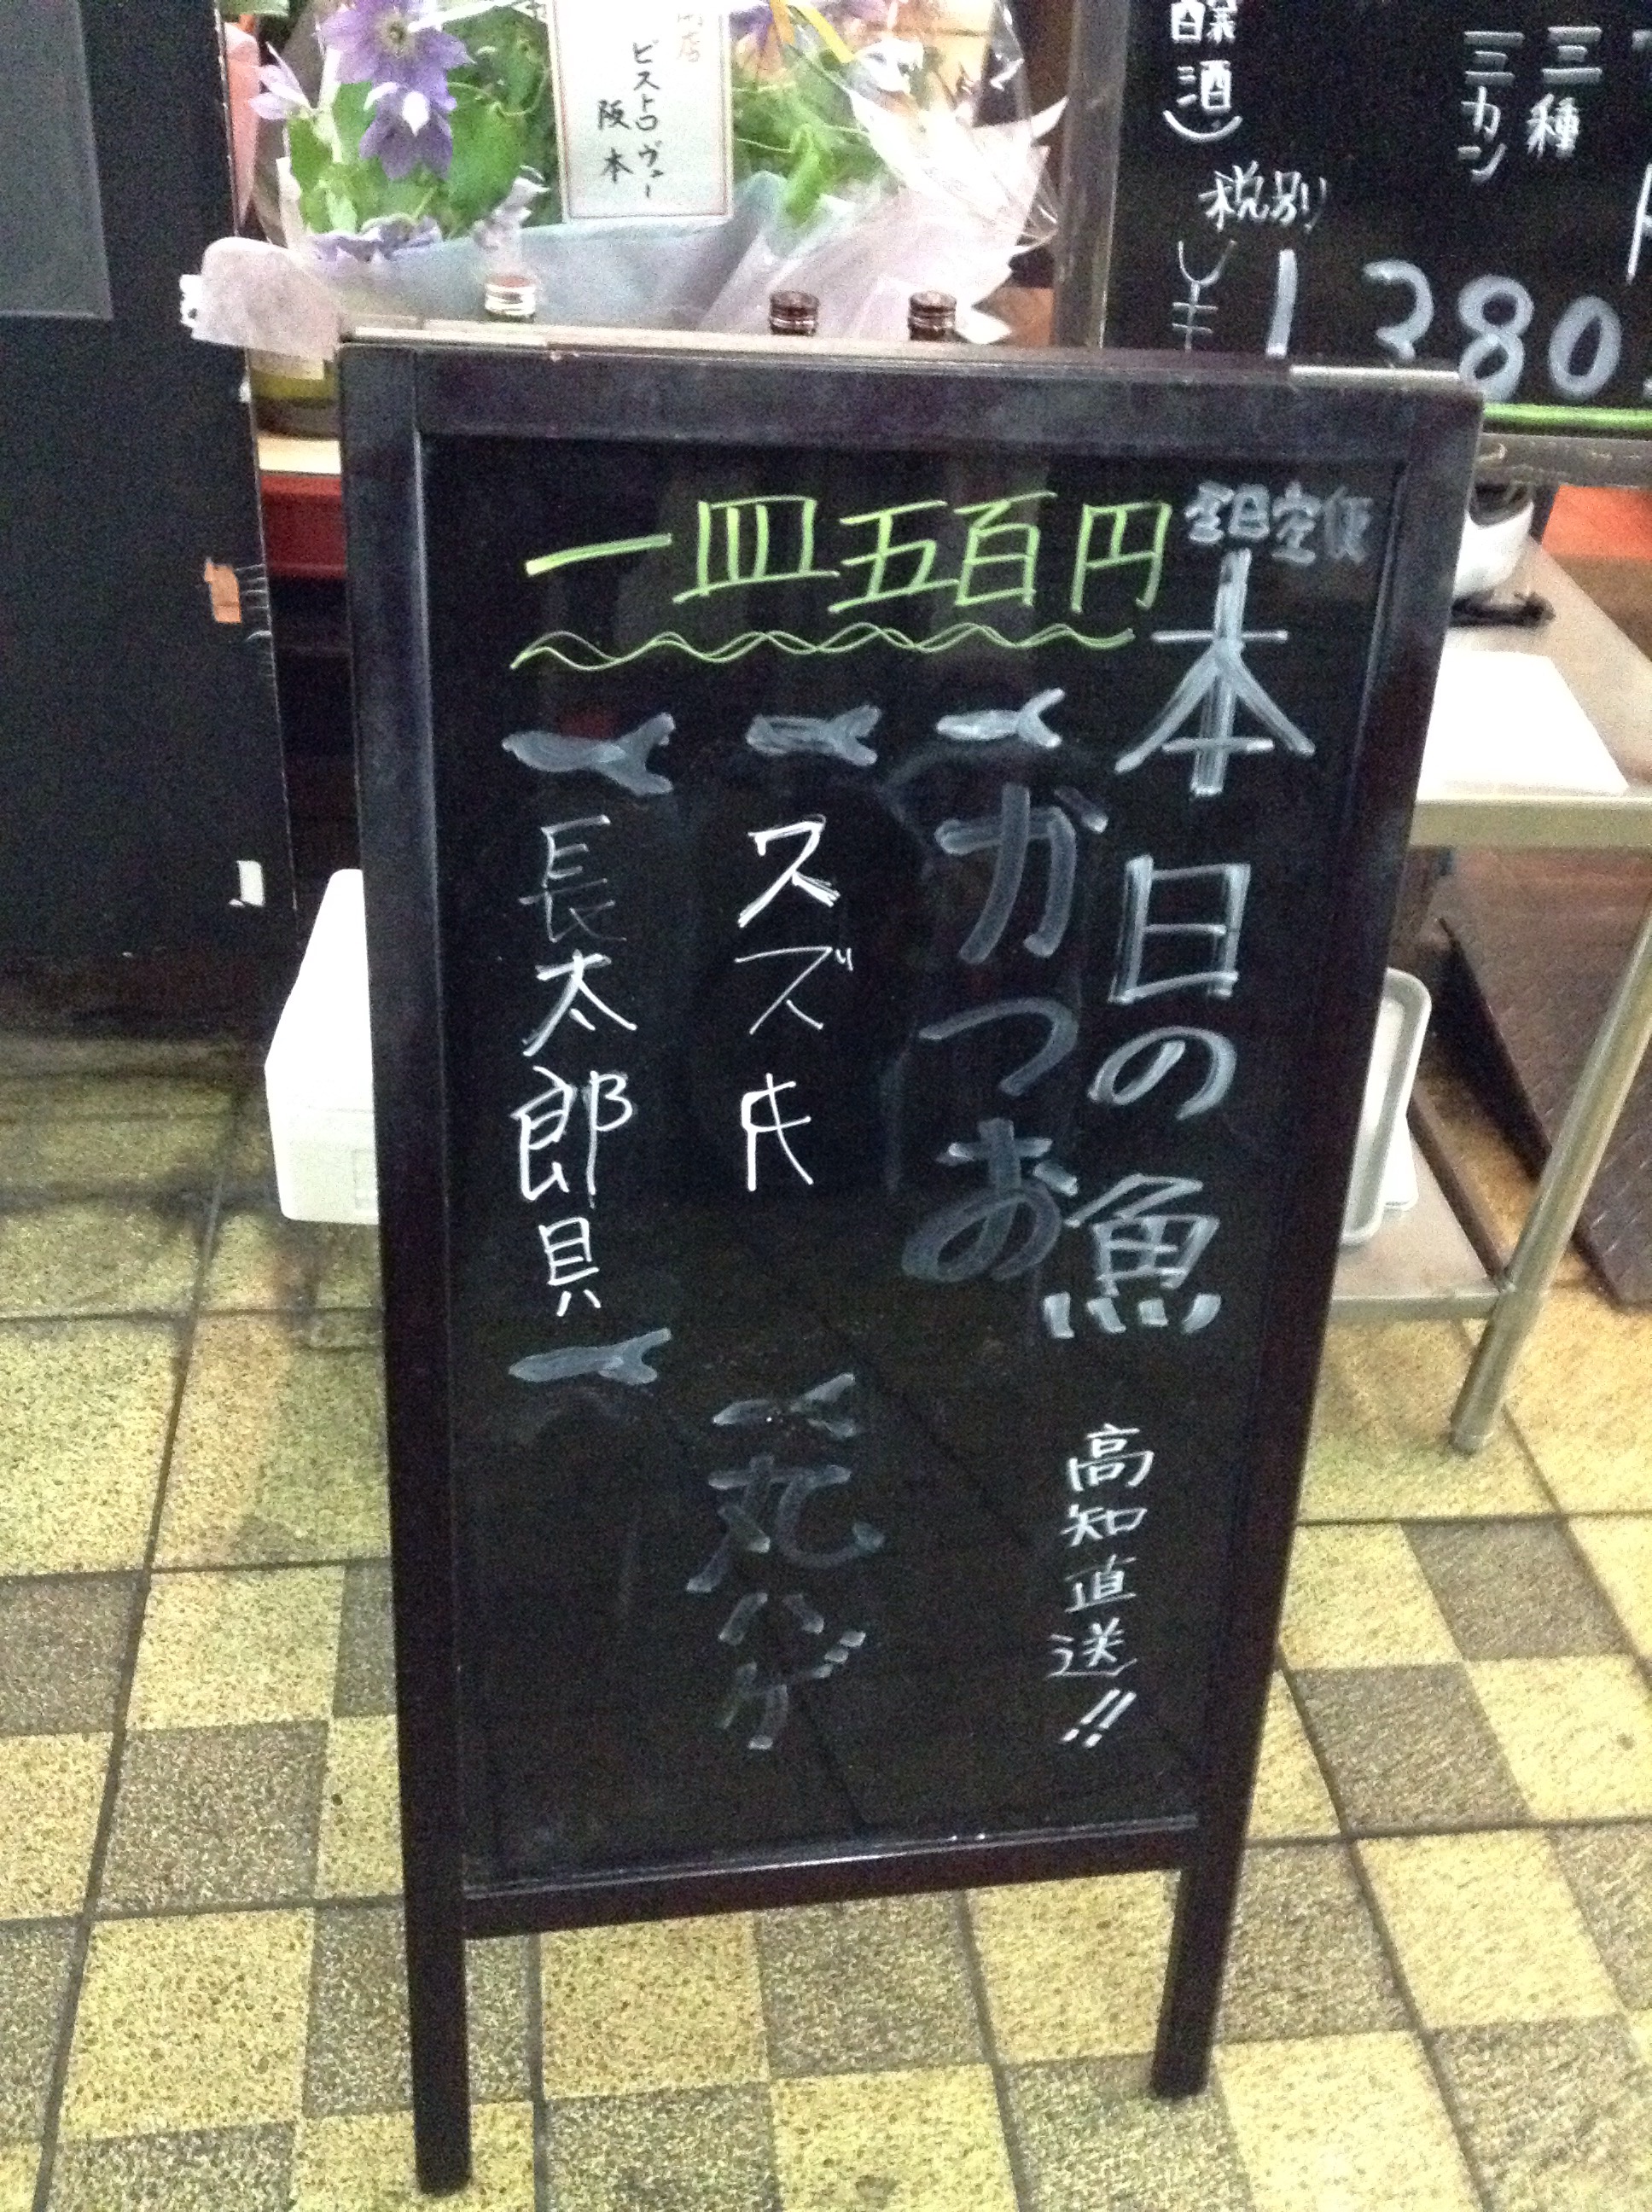 一皿五百円
本日の魚
高知直送!!
かつお
スズキ
丸ハゲ
長太郎貝
開店
ビストロヴァー
阪本
醸酒)
税別
¥1380.
三種
三カン